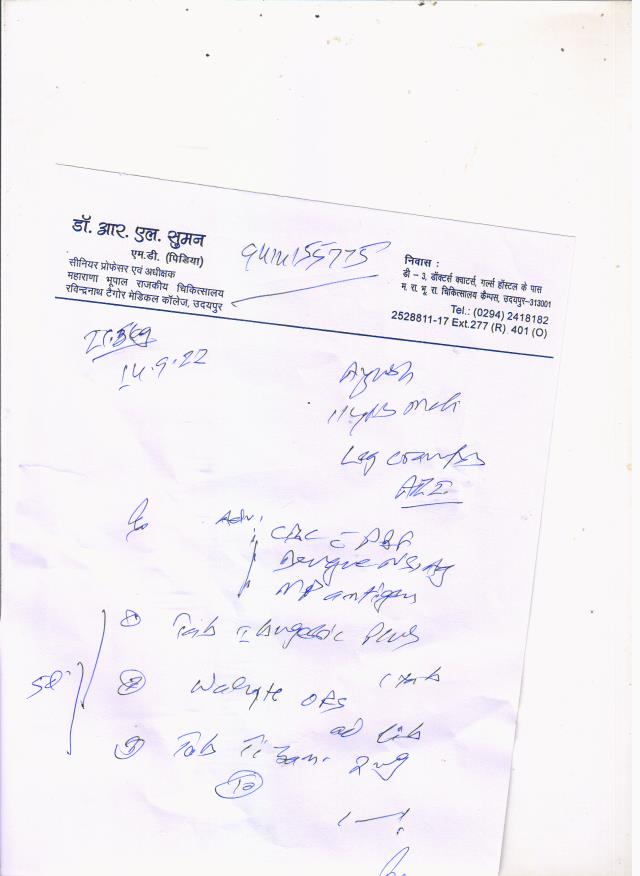 डॉ. आर. एल. सुमन
एम.डी. (पिडिया)
सीनियर प्रोफेसर एवं अधीक्षक
महाराणा भूपाल राजकीय चिकित्सालय
रविन्द्रनाथ टैगोर मेडिकल कॉलेज, उदयपुर
निवास :
डी – ३, डॉक्टर्स क्वाटर्स, गर्ल्स हॉस्टल के पास
म. रा. भू. रा. चिकित्सालय कैम्पस, उदयपुर–313001
Tel.: (0294) 2418182
2528811-17 Ext.277 (R) 401 (O)
14.9.22
Ayush
11 yrs Male
Leg cramps
Adv:
CBC c PBF
Dengue NS1 Ag
MP antigen
① Tab Ibugesic Plus
1 tab
② Walyte ORS
ad lib
③ Tab 2 mg
(10)
5d